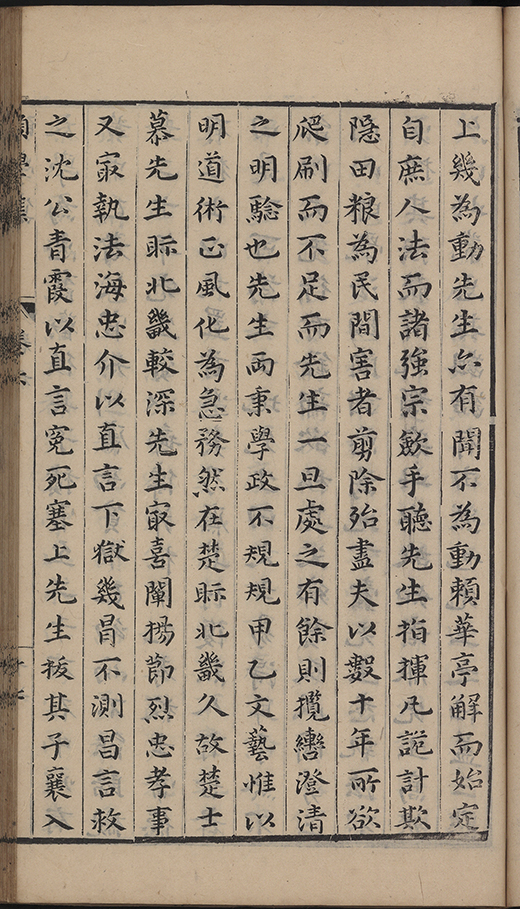 上幾為動先生亦有聞不為動賴華亭解而始定
自庶人法而諸強宗歛手聽先生指揮凡詭計欺
隱田粮為民間害者剪除殆盡夫以數十年所欲
爬刷而不足而先生一旦處之有餘則攬轡澄清
之明驗也先生両秉學政不規規甲乙文藝惟以
明道術正風化為急務然在楚眎北畿久故楚士
慕先生眎北畿較深先生㝡喜闡揚節烈忠孝事
又㝡執法海忠介以直言下獄幾冐不測昌言救
之沈公青霞以直言寃死塞上先生拔其子襄入